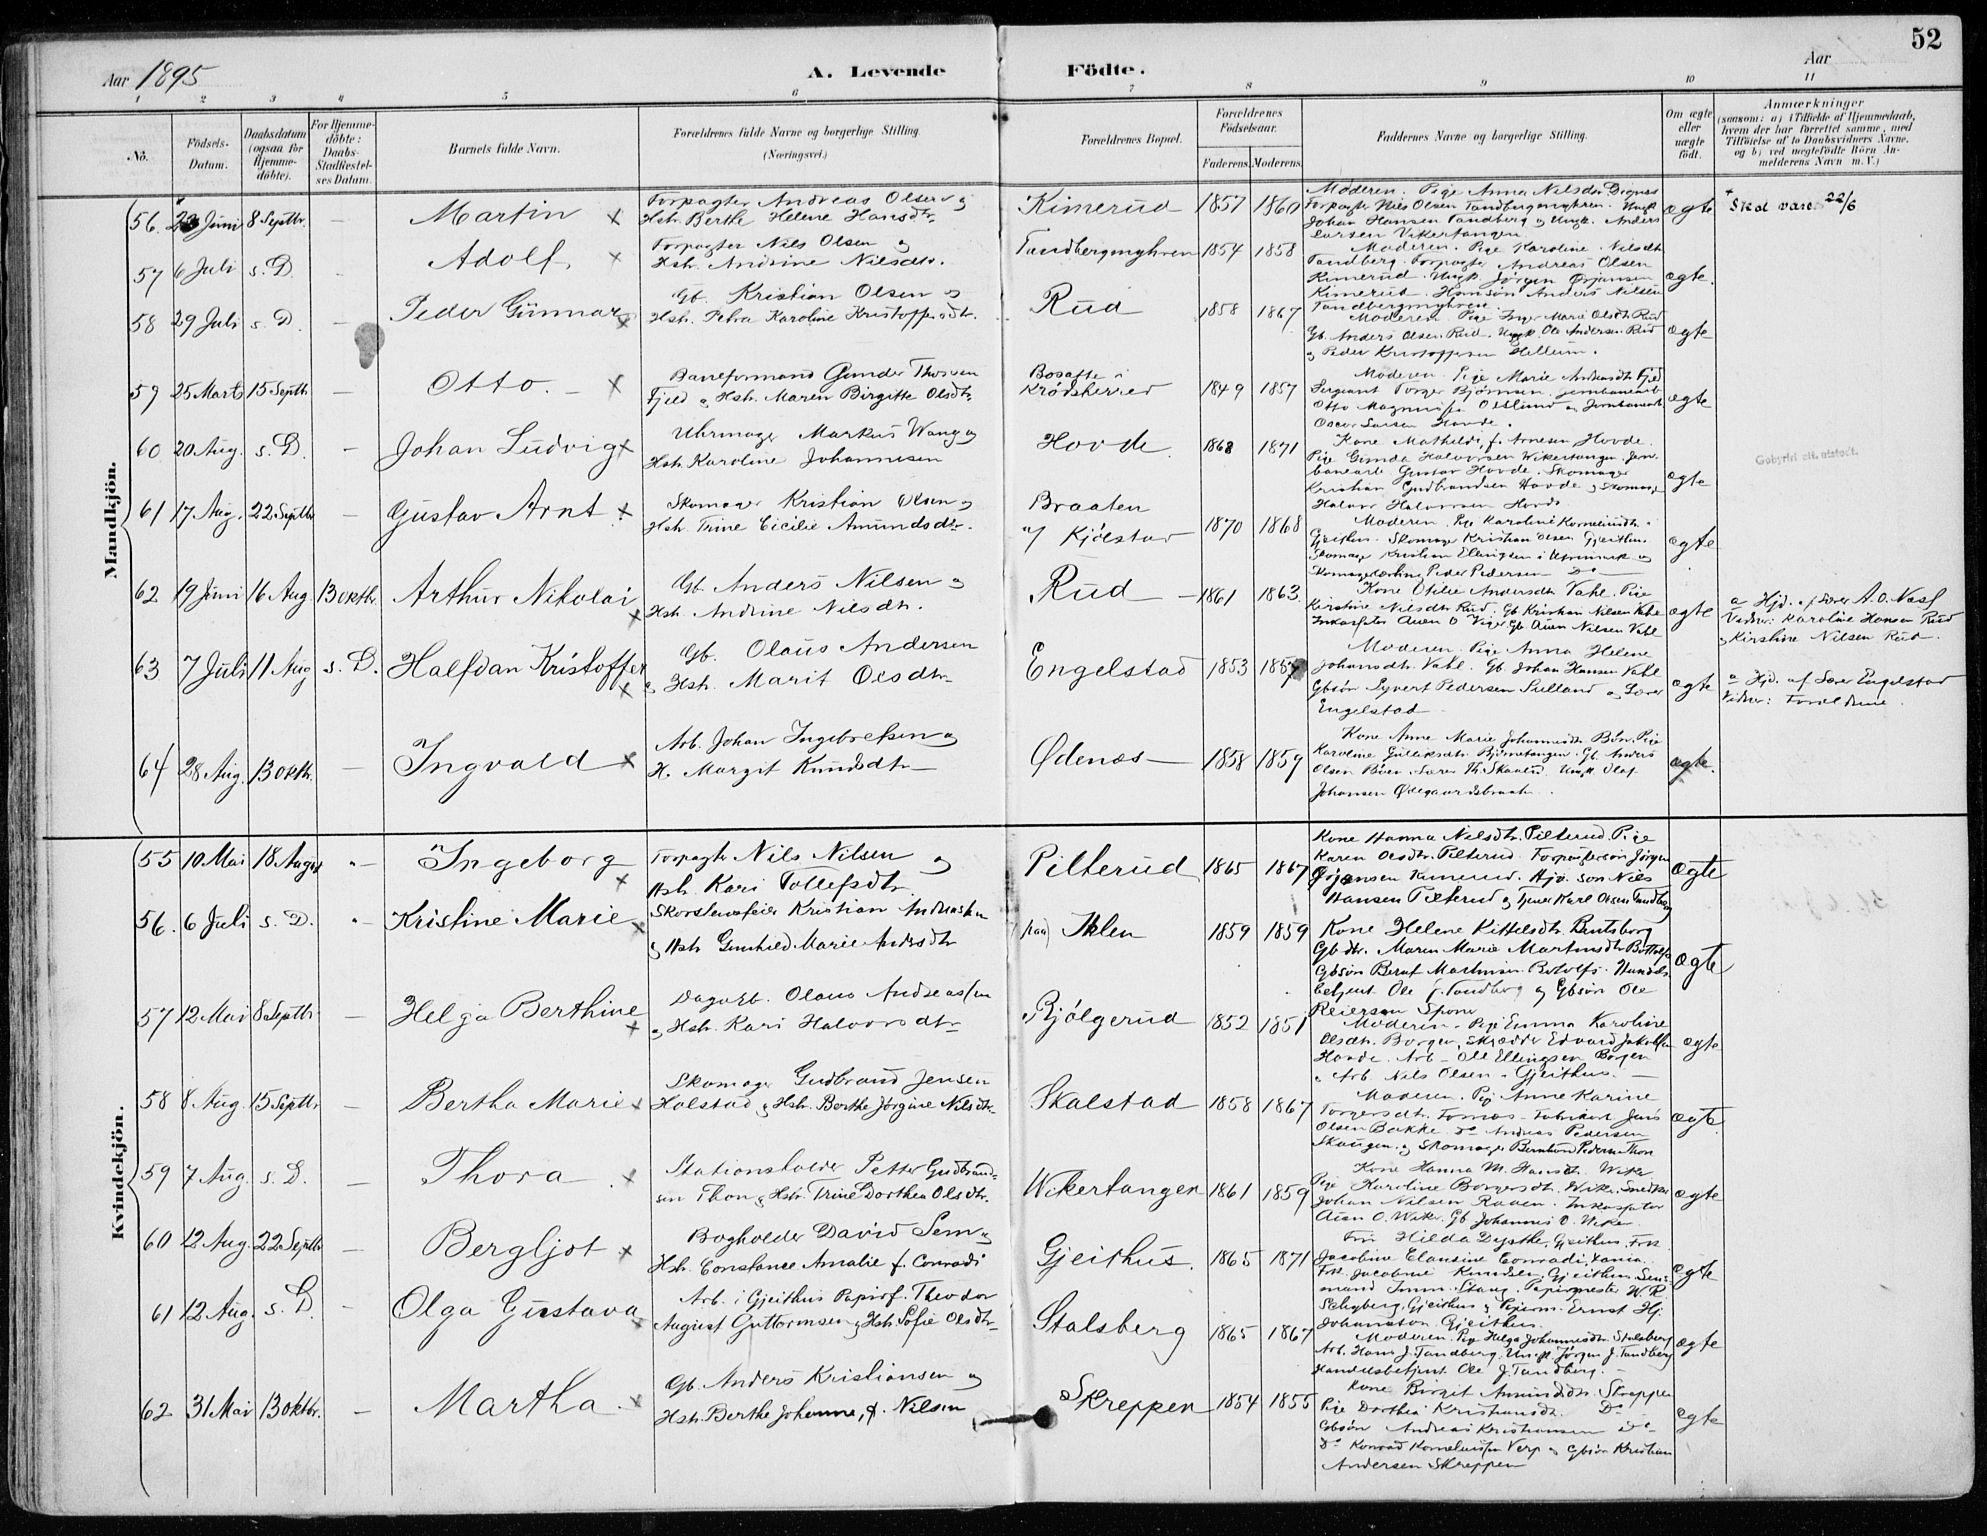 52
Aar 1895
A. Levende Födte.
Aar
1 2 3 4 5 6 7 8 9 10 11
No.
Födsels-Datum.
Daabsdatum (ogsaa for Hjemme-döbte).
For Hjemme-döbte: Daabs-Stadfæstel-ses Datum.
Barnets fulde Navn.
Forældrenes fulde Navne og borgerlige Stilling. (Næringsvei.)
Forældrenes Bopæl.
Forældrenes Födselsaar.
Faderens. Moderens.
Faddernes Navne og borgerlige Stilling.
Om ægte eller uægte födt.
Anmærkninger
(saasom: a) i Tilfælde af Hjemmedaab, hvem der har forrettet samme, med Tilföielse af to Daabsvidners Navne, og b) ved uægtefödte Börn An-melderens Navn m. V.)
Mandkjön.
56. 23 Juni 8 Septbr. — Martin x
Forpagter Andreas Olsen og
Hstr. Berthe Helene Hansdtr.
Kimerud 1857 1860
Moderen. Pige Anna Nilsdtr.
Forpagter Nils Olsen Tandbergmyhren. Ungk.
Johan Hansen Tandberg og Ungk. Anders
Larsen Vikertangen
ægte
Skal være 22/6
57 6 Juli s. D. Adolf. x
Forpagter Nils Olsen og
Hstr. Andrine Nilsdtr.
Tandbergmyhren 1854 1858
Moderen. Pige Karoline Nilsdtr.
Tandberg. Forpagter Andreas Olsen
Kimerud. Ungk. Jörgen Örjansen
Kimerud. Anders Nilsen
Tandbergmyhren
ægte.
58 29 Juli s. D. — Peder Gunnar x
Gb. Kristian Olsen og
Hstr. Petra Karoline Kristoffersdtr.
Rud 1858 1867
Moderen. Pige Inger Marie Olsdtr. Rud
Gb. Anders Olsen Rud. Ungk. Ole Andersen Rud
og Peder Kristoffersen Hellum.
ægte
59 25 Marts 15 Septbr. — Otto. — x
Baneformand Gunder Thorsen
Fjeld og Hstr. Maren Birgitte Olsdtr.
Bosatte i
Krödsherred 1849 1857
Moderen. Pige Marie Fjeld
Sergeant Torger Björnsen, Jernbanearb.
Otto Magnus Oslund og Jernbanearb.
Oscar Larsen Hovde.
ægte
60. 20 Aug. s. D. — Johan Ludvig x
Uhrmager Markus Wang og
Hstr. Karoline Johannesen
Hovde. 1868 1871
Kone Mathilde f. Arnesen Hovde.
Pige Gunda Halvorsen Wikertangen. Jern-
banearb. Gustav Hovde. Skomager
Kristian Gudbrandsen Hovde og Skomag.
Halvor Halvorsen Hovde
ægte
61 17 Aug. 22 Septbr — Gustav Arnt. x
Skomager Kristian Olsen og
Hstr. Trine Cicilie Amundsdtr.
Braaten
u/ Kjölstad 1870 1868
Moderen. Pige Karoline Korneliusdtr.
Gjeithus. Skomager Kristian Olsen Gjeithus.
Skomager Kristian Ellingsen i og
Skomagerlærling Peder Pedersen Do
ægte
62 19 Juni 16 Aug. 13 Oktbr. Arthur Nikolai x
Gb. Anders Nilsen og
Hstr. Andrine Nilsdtr.
Rud — 1861 1863.
Kone Otilie Andersdtr. Vahl. Pige
Kirstine Nilsdtr. Rud. Gb. Kristian Nilsen Vahl
Inkassator Auen O. Viger. Gb. Auen Nilsen Vahl
ægte
a Hjd. af Lærer A. O. Næsf
Vidner: Karoline Hansen Rud
og Kirstine Nilsen Rud.
63 7 Juli 11 Aug s. D. Halfdan Kristoffer x
Gb. Olaus Andersen
og Hstr. Marit Olsdtr.
Engelstad 1853 1857
Moderen. Pige Anna Helene
Johansdtr. Vahl. Gb. Johan Hansen Vahl
Gbsön Syvert Pedersen Sulland og Lærer
Engelstad
ægte
a Hjd. af Lærer Engelstad
Vidner: Forældrene.
64 28 Aug. 13 Oktbr. — Ingvald x
Arb. Johan Ingebretsen og
H. Margit Knudsdtr.
Ødenæs — 1858 1859
Kone Anne Marie Johannesdtr. Böen. Pige
Karoline Gulliksdtr. Bjerketangen. Gb. Anders
Olsen Böen. Lærer Th. Skaalid. Ungk. Olaf
Johansen Ødegaardsbraaten.
ægte.
Kvindekjön.
55 10 Mai 18 August „— Ingeborg x
Forpagter Nils Nilsen og
Hstr. Kari Tollefsdtr.
Pilterud 1865 1867
Kone Hanna Nilsdtr. Pilterud. Pige
Karen Olsdtr. Pilterud. Forpagtersön Jörgen
Örjansen Kimerud. Gb. sön Nils
Hansen Pilterud og Tjener Karl Olsen Tandberg
ægte
56. 6 Juli s. D. „— Kristine Marie x
Skorstensfeier Kristian Andreassen
og Hstr. Gunhild Marie Andersdtr.
paa Iklen 1859 1859
Kone Helene Kittelsdtr. Buntsborg
Gb dtr. Maren Marie Martinsdtr. Bottolfs
Gbsön Bernt Martinsen Bottolfs. Handels-
betjent Ole J. Tandberg og Gbsön Ole
Reiersen Spone
ægte
57 12 Mai 8 Septbr — Helga Berthine x
Dagarb. Olaus Andreassen
og Hstr. Kari Halvorsdtr.
Bjölgerud 1852 1851
Moderen. Pige Emma Karoline
Olsdtr. Borgen, Skrædder Edvard Jakobsen
Hovde. Arb. Ole Ellingsen Borgen
og Arb. Nils Olsen Gjeithus. —
ægte
58 8 Aug. 15 Septbr. — Bertha Marie x
Skomager Gudbrand Jensen
Halstad og Hstr. Berthe Jörgine Nilsdtr.
Skalstad 1858 1867
Moderen. Pige Anne Karine
Torgersdtr. Tomas. Fabrikarb. Jens
Olsen Bakke. Do Andreas Pedersen
Skaugen. og Skomager Bernhard Pedersen Thon
ægte.
59 7 Aug. s. D. — Thora x
Stationsholder Petter Gudbrand-
sen Thon og Hstr. Trine Dorthea Olsdtr.
Wikertangen 1861 1859
Kone Hanna M. Hansdtr. Wiker
Pige Karoline Borgersdtr. Wiker. Snedker
Johan Nilsen Raaen. Inkassator
Auen O. Wiker. Gb. Johannes O. Wiker.
ægte
60 12 Aug. 22 Septbr — Bergljot x
Bogholder David Sem og
Hstr. Constance Amalie f. Conradi
Gjeithus. 1865 1871
Fru Hilda Dysthe, Gjeithus, Frk.
Jacobine Elausine Conradi,
Frk. Jacobine Knudsen, Gjeithus,
mand Imm. Stang. Papirmester W. R.
Selgberg, Gjeithus og Ernst Hj.
Johanston, Gjeithus.
ægte
61 12 Aug. s. D. — Olga Gustava x
Arb. i Gjeithus Papirf. Theodor
August Guttormsen og Hstr. Sofie Olsdtr.
Stalsberg 1865 1867
Moderen. Pige Helga Johannesdtr. Stalsberg
Arb. Hans J. Tandberg. Ungk. Jörgen J. Tandberg
Handelsbetjent Ole J. Tandberg. —
ægte
62 31 Mai 13 Oktbr. — Martha. x
Gb. Anders Kristiansen og
Hstr. Berthe Johanne, f. Nilsen
Skreppen 1854 1855
Kone Birgit Amundsdtr. Skreppen
Pige Dorthea Kristiansdtr. Do
Gbsön Andreas Kristiansen Do
Do Konrad Korneliussen Verp og Gbsön Kristian
Andersen Skreppen
ægte